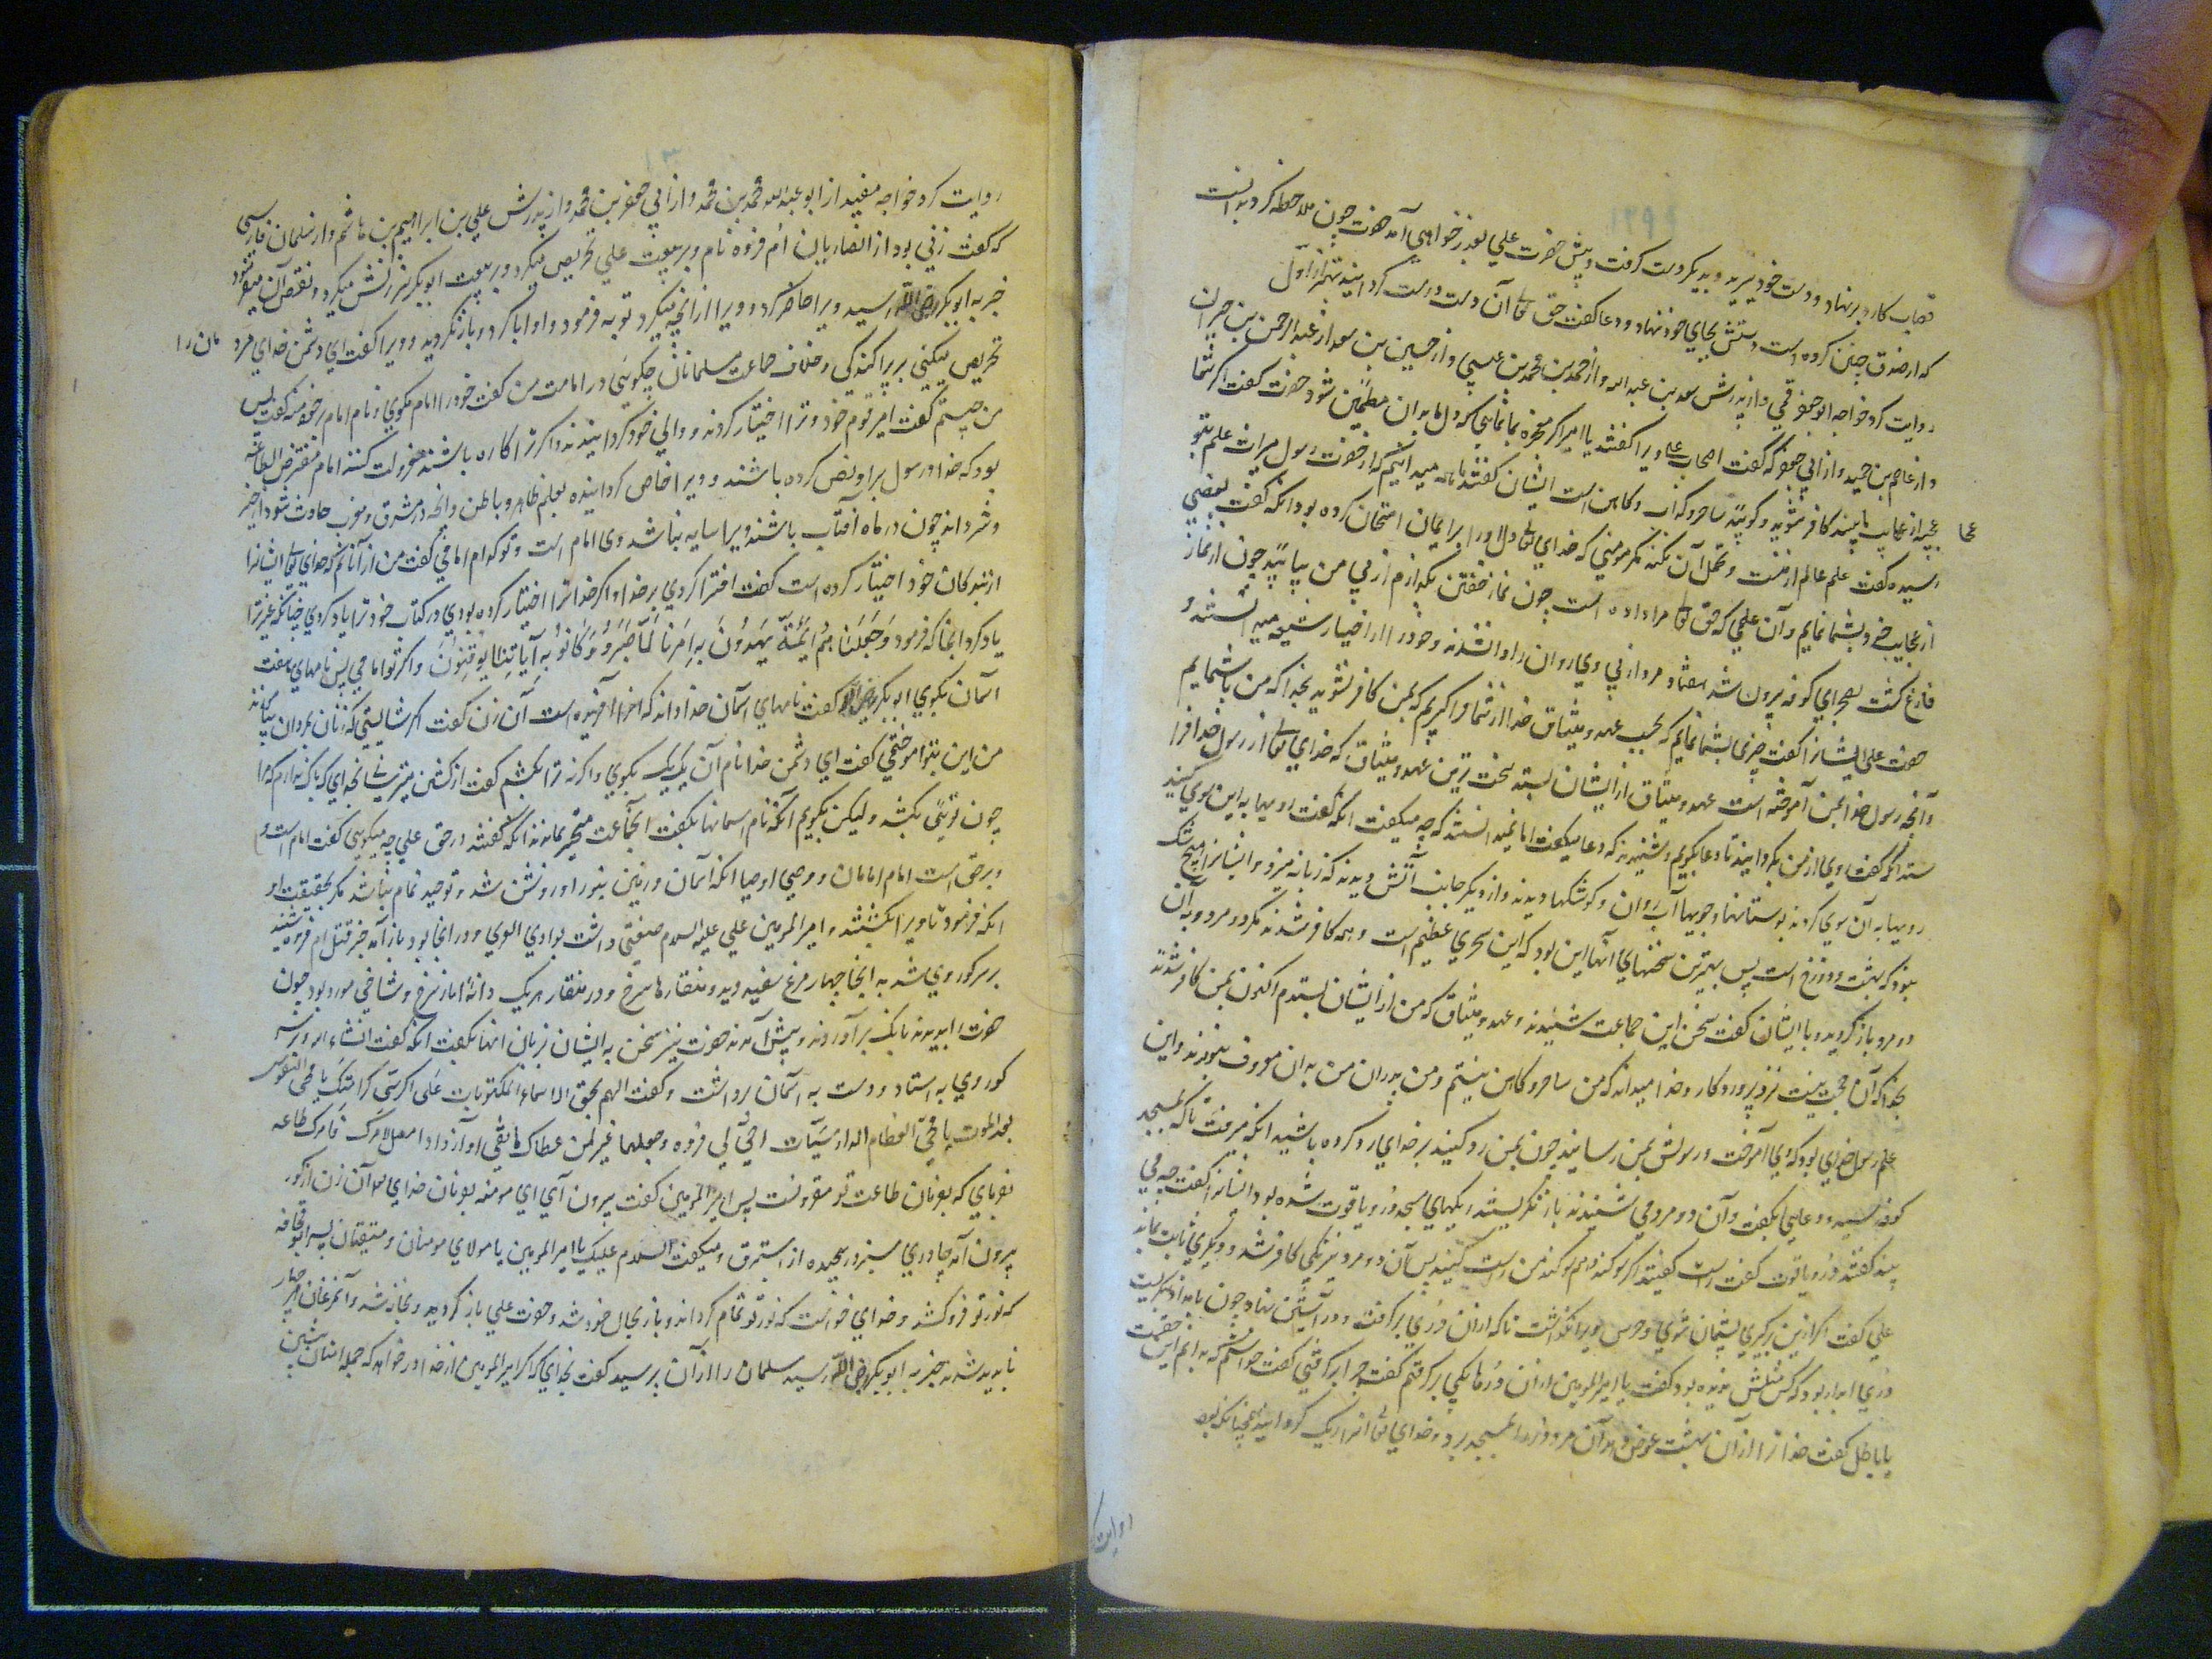 قصاب کارد برنهاد و دست خود ببرید و بدیگر دست گرفت و پیش حضرت علی بعذر خواهی آمد حضرت چون ملاحظه کرد بدانست
که از صدق چنین کرده است دستش بجای خود نهاد و دعا گفت حق تعالی آن دست درست گردانید بهتر از اول
روایت کرد خواجه ابو جعفر قمی و از پدرش سعد بن عبد الله و از احمد بن محمد بن عیسی و از حسین بن سعد از عبد الرحمن بن
و از عاصم بن حمید و از ابی جعفر که گفت اصحاب علی ویرا گفتند یا امیر اگر معجزه بما نمایی که دل ما بدان مطمئن شود حضرت گفت اگر شما
عجیبه از عجایب ما بینید کافر شوید و گویید ساحر و کذاب و کاهن است ایشان گفتند ما همه میدانیم که از حضرت رسول میراث علم بتو
رسیده گفت علم عالم و تحمل آن نکند مگر مومنی که خدای تعالی دل او را برای ایمان امتحان کرده بود آنگه گفت بعضی
از عجایب خود بشما نمایم و آن علمی که حق تعالی مرا داده است چون نماز خفتن بگذارم از پی من بیایید چون از نماز
فارغ گشت بصحرای کوفه بیرون شد هفتاد مرد از پی وی روان شدند و خود را از اخیار شیعه میدانستند
حضرت علی ایشانرا گفت چیزی بشما ننمایم که عهد و میثاق خدا از شما فراگیرم که بمن کافر نشوید بخدا که من با شما نمایم
و آنچه رسول خدا بمن آموخته است عهد و میثاق از ایشان بستد سخت ترین عهد و میثاق که خدای تعالی از رسول خدا فرا
ستد آنگه گفت روی از من بگردانید تا دعا بگویم و شنیدند که دعا میگفت اما نمیدانستند که چه میگفت آنگه گفت رویها به این سوی کنید
رویها به آن سوی کردند بوستانها و جویها آب روان و کوشکها دیدند و از دیگر جانب آتش دیدند که زبانه میزد و ایشانرا هیچ شک
نبود که بهشت و دوزخ است پس بهترین سخنهای آنها این بود که این سحری عظیم است و همه کافر شدند مگر دو مرد و به آن
دو مرد باز گردید و با ایشان گفت سخن این جماعت شنیدند و عهد و میثاق که من از ایشان بستدم اکنون بمن کافر شدند
بخدا که آن حجت منست نزد پروردگار و خدا میداند که من ساحر و کاهن نیستم و من و پدران من به ان معروف نبودند و این
علم رسول خدای بود که وی آموخت و رسولش بمن رسانید چون بمن رد کنید بر خدای رد کرده باشید آنگه میرفت تا که بمسجد
کوفه رسید و دعایی بگفت و آن دو مرد می شنیدند باز نگریستند ریگهای مسجد در و یاقوت شده بود ایشانرا گفت چه می
بینید گفتند در و یاقوت گفت راست گفتید اگر سوگند دهم سوگند من راست کنید پس آن دو مرد نیز یکی کافر شد و دیگری ثابت بماند
علی گفت اگر ازین برگیری پشیمان شوی و حرص ویرا نگذاشت تا که ازان دری بر گرفت و در آستین نهاد چون بامداد نگریست
دری ابدار بود که کس مثلش ندیده بود گفت یا امیر المومنین ازان درها یکی بر گرفتم گفت چرا بر گرفتی گفت خواستم که بدانم این حقست
یا باطل گفت خدا ترا ازان بهشت عوض دهد آن مرد در را بمسجد برد و خدای تعالی انرا ریک گردانید همچنانکه بود
روایت
روایت کرد خواجه مفید از ابو عبد الله محمد بن محمد و از ابی جعفر بن محمد و از پدرش علی بن ابراهیم بن هاشم و از سلمان فارسی
که گفت زنی بود از انصاریان ام فروه نام و بر بیعت علی تحریص میکرد و بر بیعت ابوبکر سرزنش میکرد و نقص آن مینمود
خبر به ابوبکر رضی الله رسید ویرا حاضر کرد و ویرا از انچه میکرد توبه فرمود و او ابا کرد و باز نگردید و ویرا گفت ای دشمن خدای مردمان را
تحریص میکنی بر پراکندگی و خلاف جماعت مسلمانان چگویی در امامت من گفت خود را امام مگوی و نام امام بر خود منه گفت پس
من چیستم گفت امیر قوم خود و ترا اختیار کردند و والی خود گردانیدند و اگر ترا کاره باشند معزولت کنند امام مفترض الطاعه
بود که خدا و رسول بر او نص کرده باشند و ویرا خاص گردانیده بعلم ظاهر و باطن و انچه در مشرق و مغرب حادث شود از خیر
و شر داند چون در ماه آفتاب باشند ویرا سایه نباشد وی امام است و تو کدام امامی گفت من از آنانم که خدای تعالی ایشانرا
از بندگان خود اختیار کرده است گفت افترا کردی بر خدا و اگر خدا ترا اختیار کرده بودی در کتاب خود ترا یاد کردی چنانکه غیر ترا
یاد کرد انجا که فرمود وَجَعَلنَا مِنهُم اَئِمَّةً یَهدُونَ بِاَمرِنَا لَمَّا صَبَرُو وَکَانُو بِآیَاتِنَا یُوقِنُونَ و اگر تو امامی پس نامهای هفت
آسمان بگوی ابوبکر رضی الله گفت نامهای آسمان خدا داند که انرا آفریده است آن زن گفت اگر شایستی که زنان مردان بیاموزند
من این بتو آموختمی گفت ای دشمن خدا نام آن یک یک بگوی و اگر نه ترا بکشم گفت از کشتن میترسانی بخدای که باک ندارم که مرا
چون تویی بکشد ولیکن بگویم آنگه نام آسمانها بگفت آنجماعت متحیر بماندند آنگه گفتند در حق علی چه میگویی گفت امام است و
و بر حق است امام امامان و وصی اوصیا آنکه آسمان و زمین بنور او روشن شد و توحید تمام نباشد مگر بحقیقت او
آنگه فرمود تا ویرا بکشتند و امیر المومنین علی علیه السلام ضیعتی داشت بوادی القری و در انجا بود باز آمد خبر قتل ام فروه شنید
بر سر گور وی شد به انجا چهار مرغ سفید دید و منقارها سرخ و در منقار هر یک دانهٔ انار سرخ و شاخی مورد بود چون
حضرت را بدیدند بانگ بر آوردند و پیش آمدند حضرت نیز سخن به ایشان بزبان انها بگفت آنگه گفت انشاء الله و بر سر
گور وی به استاد و دست به آسمان برداشت و گفت اللهم بحق الاسماء المکتوبات علی اکرسی کرامتک یا محیی النفوس
بعد الموت یا محیی العظام
که بفرمان طاعت تو مقرونست پس امیر المومنین گفت بیرون آی ای مومنه بفرمان خدای تعالی آن زن از گور
بیرون آمد چادری سبز در پیچیده از استبرق و میگفت السلام علیک یا امیر المومنین یا مولای مومنان و متقیان پسر ابوقحافه
که نور تو فرو کشد و خدای خواست که نور تو تمام گرداند و باز بحال خود شد و حضرت علی باز گردید و بخانه شد و آنمرغان هر چهار
ناپدید شدند خبر به ابوبکر رضی الله رسید سلمان را از آن پرسید گفت بخدای که اگر امیر المومنین از خدا در خواهد که جمله